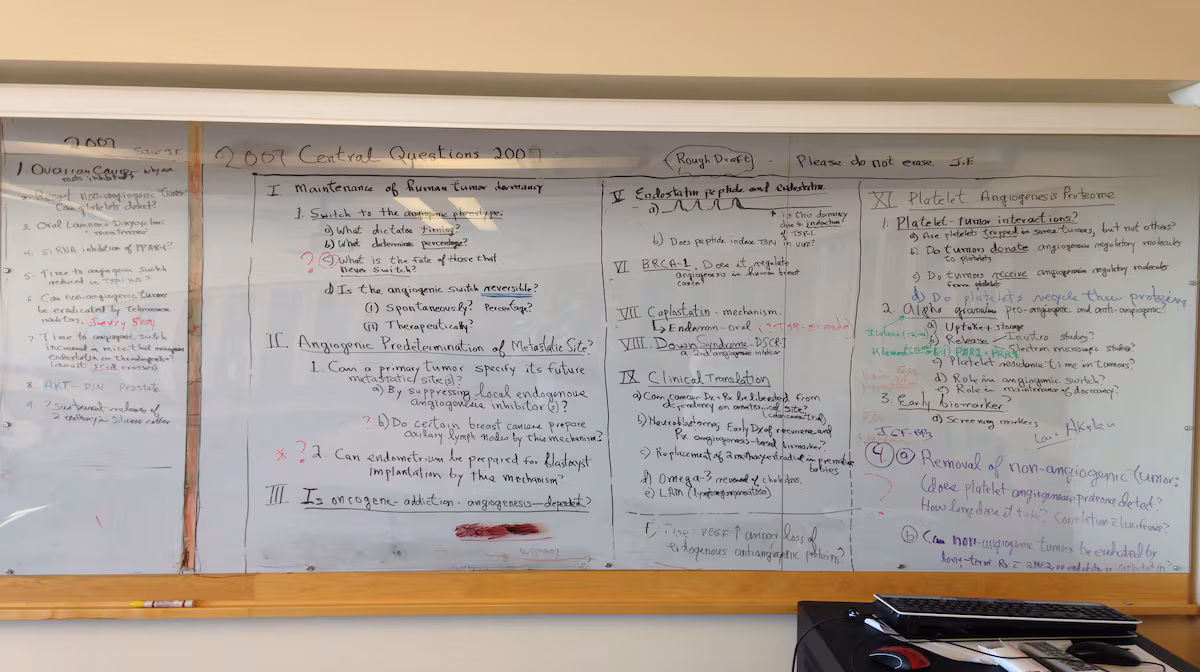 2007
1 Ovarian Cancer why on
2. Reset non-angiogenic tumor
Can platelets detect?
3. Oral
4. siRNA inhibition of PPAR-γ?
5- Time to angiogenic switch
reduced in TSP1
6. Can non-angiogenic tumors
be eradicated by telomerase
inhibitors. Jerry Shay
7. Time to angiogenic switch
increased in mice that
endostatin or thrombospondin?
(consult: SCID crosses)
8. AKT- Prostate
9. ? Sustained-release of
2 methoxy in silicone rubber
2007 Central Questions 2007
Rough Draft - Please do not erase. J.F
I Maintenance of human tumor dormancy
1. Switch to the angiogenic phenotype:
a) What dictates timing?
b) What determines percentage?
? c) What is the fate of those that
never switch?
d) Is the angiogenic switch reversible?
(i) Spontaneously? Percentage?
(ii) Therapeutically?
II. Angiogenic Predetermination of Metastatic Site?
1. Can a primary tumor specify its future
metastatic site(s)?
a) By suppressing local endogenous
angiogenesis inhibitor(s)?
? b) Do certain breast cancers prepare
axillary lymph nodes by this mechanism?
* ? 2. Can endometrium be prepared for blastocyst
implantation by this mechanism?
III Is oncogene-addiction-angiogenesis-dependent?
V Endostatin peptide and endostatin
a)
* is this dormancy
due to induction
of TSP-1
b) Does peptide induce TSP1 in vivo?
VI BRCA-1. Does it regulate
angiogenesis in human breast
cancer?
VII Caplostatin - mechanism.
↳ Endarrm-oral
VIII. Down Syndrome-DSCR-1
a 2nd angiogenesis inhibitor
IX Clinical Translation
a) Can cancer Dx + Rx be liberated from
dependency on anatomical site?
b) Neuroblastoma, Early Dx of recurrence and
Rx angiogenesis-based biomarker?
c) Replacement of 2 methoxyestradiol in premature
babies
d) Omega-3 reversal of cholestasis.
e) LAM (lymphangiomyomatosis)
VEGF ↑ tumor loss of
endogenous antiangiogenic proteins?
XI Platelet Angiogenesis Proteome
1. Platelet-tumor interactions?
a) Are platelets trapped in some tumors, but not others?
b) Do tumors donate angiogenesis regulatory molecules
to platelets
c) Do tumors receive angiogenesis regulatory molecules
from platelets
d) Do platelets recycle their proteins
2. Alpha granules pro-angiogenic and anti-angiogenic?
a) Uptake + storage
b) Release - Invitro studies?
Electron microscopic studies?
Klement PAR1-PAR4
c) Platelet residence time in tumors?
d) Role in angiogenic switch?
e) Role in maintenance of dormancy?
3. Early biomarker?
a) Screening markers
Lars Akslen
4 a Removal of non-angiogenic tumor:
?
(does platelet angiogenesis proteome detect?
How long does it take? Correlation c̄ luciferase?
b Can non-angiogenic tumors be eradicated by
long-term Rx c̄ 2ME2, or endostatin or caplostatin?